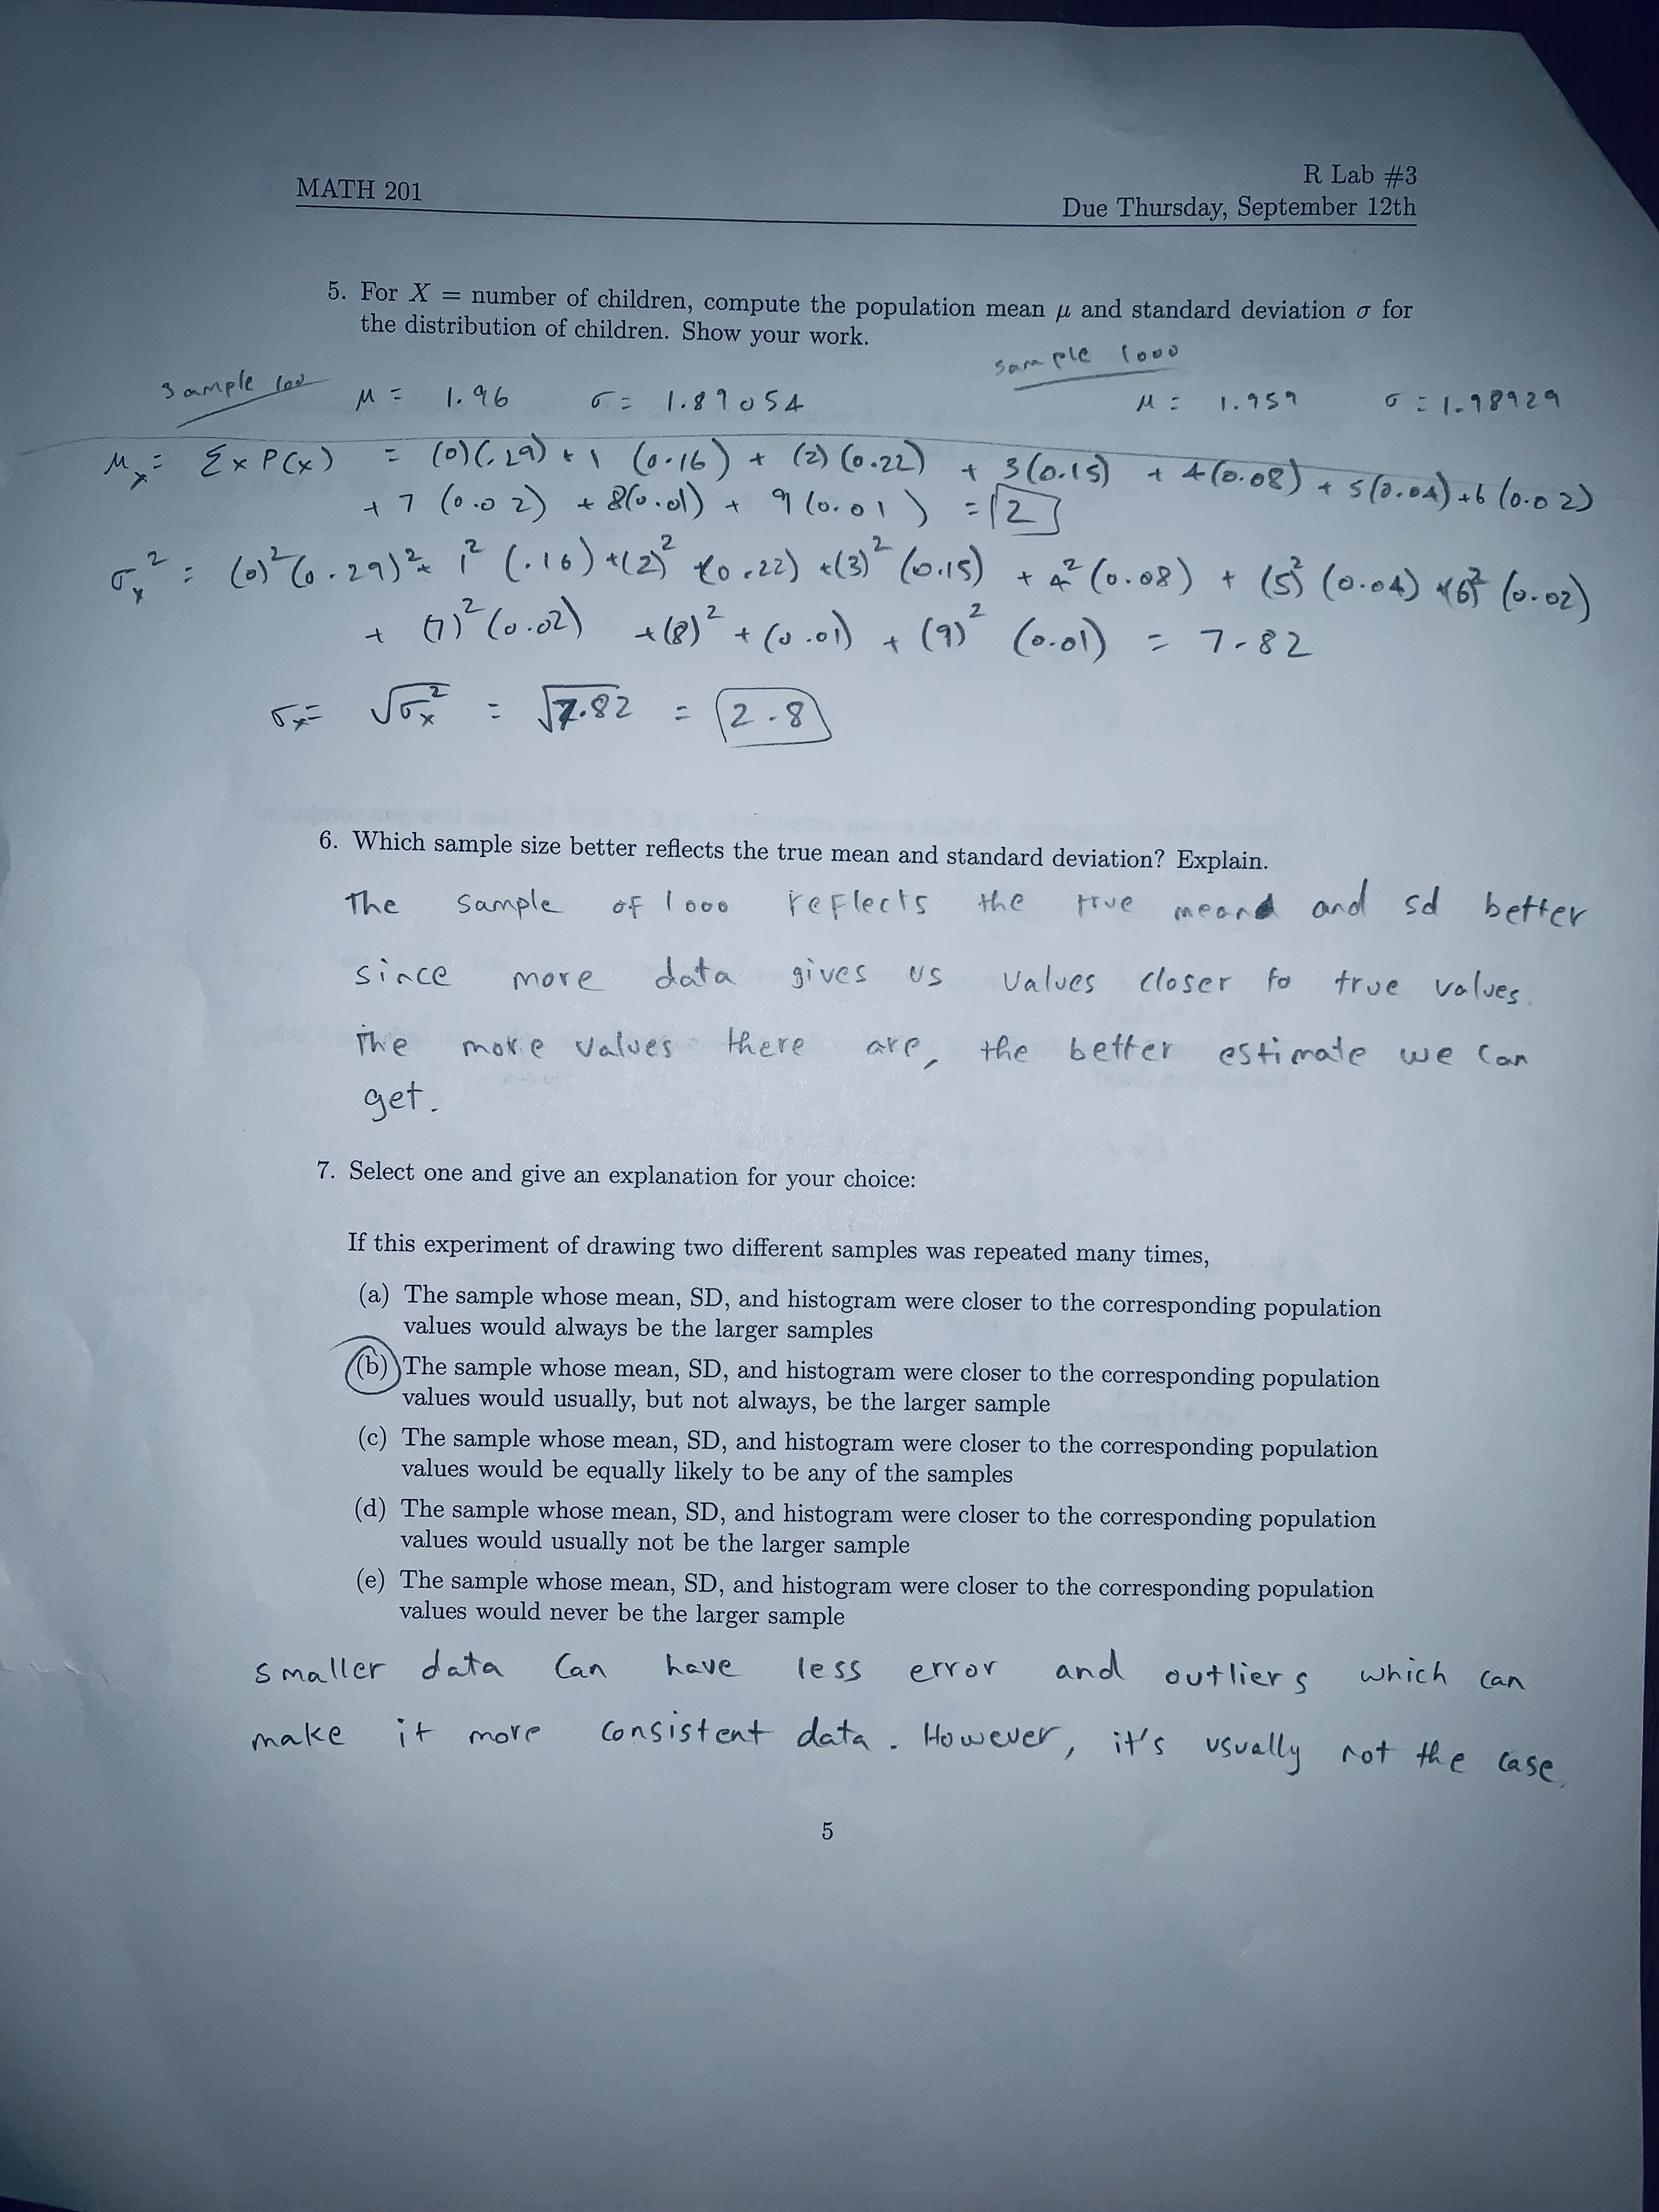 MATH 201
R Lab #3
Due Thursday, September 12th
5. For X = number of children, compute the population mean μ and standard deviation σ for
the distribution of children. Show your work.
sample 100 μ = 1.96 σ = 1.89054
sample 1000 μ = 1.959 σ = 1.98929
μx = Σ x P(x) = (0)(.29) + 1 (0.16) + (2)(0.22) + 3(0.15) + 4(0.08) + 5(0.04) + 6(0.02)
+ 7 (0.02) + 8(0.01) + 9(0.01) = 2
σx² = (0)²(0.29)² + 1² (.16) + (2)² + (0.22) + (3)² (0.15) + 4² (0.08) + (5)² (0.04) + (6)² (0.02)
+ (7)² (0.02) + (8)² + (0.01) + (9)² (0.01) = 7.82
σx = √σx² = √7.82 = 2.8
6. Which sample size better reflects the true mean and standard deviation? Explain.
The sample of 1000 reflects the true mean and sd better
since more data gives us values closer to true values.
The more values there are, the better estimate we can
get.
7. Select one and give an explanation for your choice:
If this experiment of drawing two different samples was repeated many times,
(a) The sample whose mean, SD, and histogram were closer to the corresponding population
values would always be the larger samples
(b) The sample whose mean, SD, and histogram were closer to the corresponding population
values would usually, but not always, be the larger sample
(c) The sample whose mean, SD, and histogram were closer to the corresponding population
values would be equally likely to be any of the samples
(d) The sample whose mean, SD, and histogram were closer to the corresponding population
values would usually not be the larger sample
(e) The sample whose mean, SD, and histogram were closer to the corresponding population
values would never be the larger sample
smaller data can have less error and outliers which can
make it more consistent data. However, it's usually not the case.
5